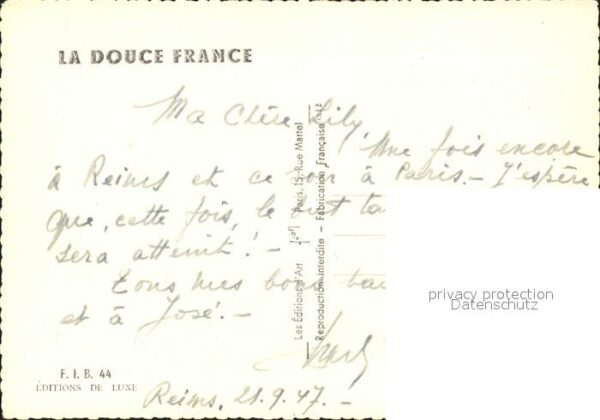 LA DOUCE FRANCE
Ma Chère Lily
Une fois encore
à Reims et ce soir à Paris. - J'espère
que, cette fois, le but ta
sera atteint! -
Tous mes bons bai
et à José. -
Reims, 21.9.47. -
F. I. B. 44
ÉDITIONS DE LUXE
Les Éditions d'Art Paris, 15, Rue Martel
Reproduction interdite - Fabrication Française
privacy protection
Datenschutz